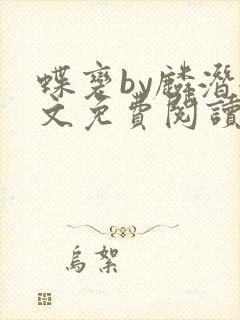 蝶裂by麟潛
文免費閱讀
烏絮